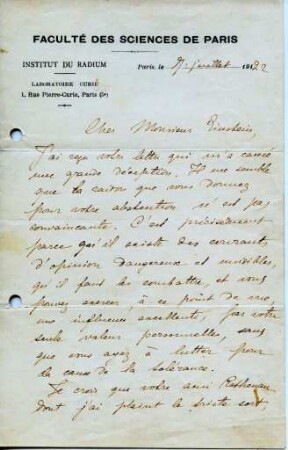 FACULTÉ DES SCIENCES DE PARIS
INSTITUT DU RADIUM
LABORATOIRE CURIE
1, Rue Pierre-Curie, Paris (5e)
Paris, le 7 juillet 1922
Cher Monsieur Einstein,
J'ai reçu votre lettre qui m'a causé
une grande déception. Il me semble
que la raison que vous donnez
pour votre abstention n'est pas
convaincante. C'est précisément
parce qu'il existe des courants
d'opinion dangereux et nuisibles,
qu'il faut les combattre, et vous
pouvez exercer, à ce point de vue,
une influence excellente, par votre
seule valeur personnelle, sans
que vous ayez à lutter pour
la cause de la tolérance.
Je crois que votre ami Rathenau
dont j'ai plaint le triste sort,